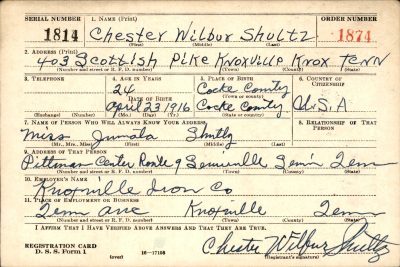 SERIAL NUMBER 1. NAME (Print) ORDER NUMBER
1814 Chester Wilbur Shultz 1874
(First) (Middle) (Last)
2. ADDRESS (Print)
403 Scottish Pike Knoxville Knox Tenn
(Number and street or R. F. D. number) (Town) (County) (State)
3. TELEPHONE 4. AGE IN YEARS 5. PLACE OF BIRTH 6. COUNTRY OF CITIZENSHIP
24 Cocke County
DATE OF BIRTH (Town or county)
April 23 1916 Cocke County U.S.A
(Exchange) (Number) (Mo.) (Day) (Yr.) (State or country)
7. NAME OF PERSON WHO WILL ALWAYS KNOW YOUR ADDRESS 8. RELATIONSHIP OF THAT PERSON
Miss Shultz
(Mr., Mrs., Miss) (First) (Middle) (Last)
9. ADDRESS OF THAT PERSON
Pittman Center Route 9 Sevierville Sevier Tenn
(Number and street or R. F. D. number) (Town) (County) (State)
10. EMPLOYER'S NAME
Knoxville Iron Co
11. PLACE OF EMPLOYMENT OR BUSINESS
Tenn ave Knoxville Tenn
(Number and street or R. F. D. number) (Town) (County) (State)
I AFFIRM THAT I HAVE VERIFIED ABOVE ANSWERS AND THAT THEY ARE TRUE.
REGISTRATION CARD
D. S. S. Form 1 (over) 16-17105 Chester Wilbur Shultz
(Registrant's signature)